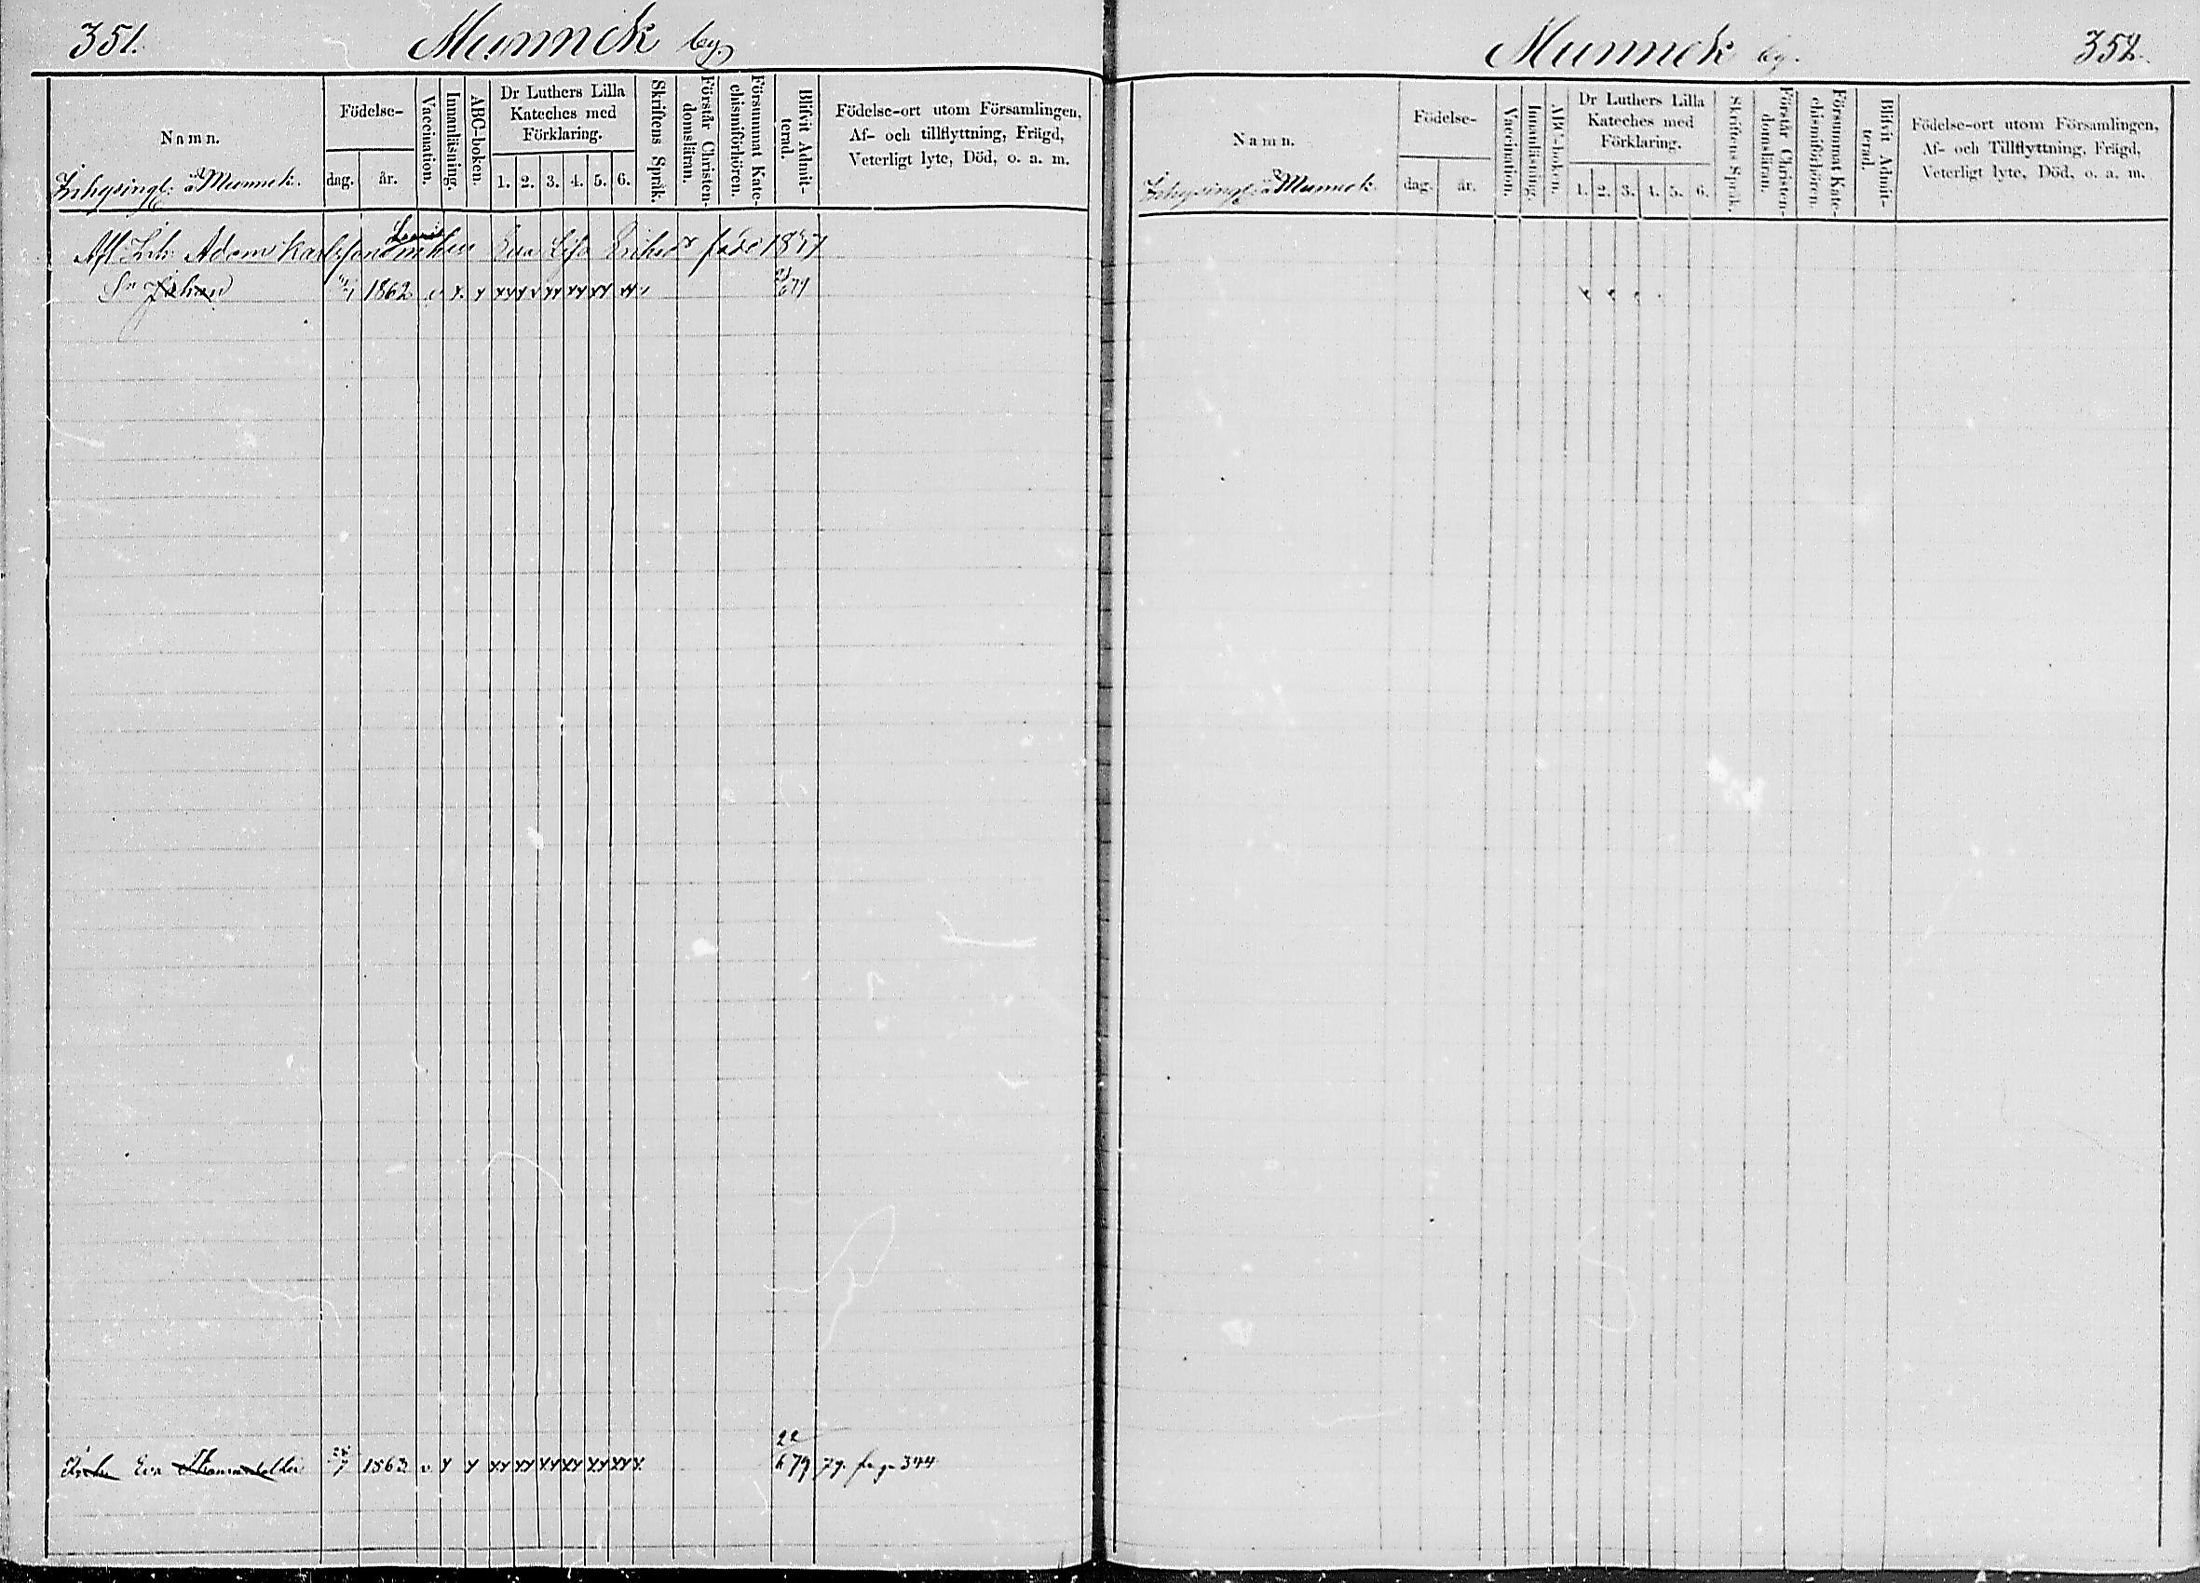 351.
Munnek by.
Namn.
Inhysingl: å Munnek.
Födelse-
dag.
år.
Vaccination.
Innanläsning.
ABC-boken.
Dr Luthers Lilla
Kateches med
Förklaring.
1. 2. 3. 4. 5. 6.
Skriftens Språk.
Förstår Christen-
domsläran.
Försummat Kate-
chismiförhören.
Blifvit Admit-
terad.
Födelse-ort utom Församlingen,
Af- och tillflyttning, Frägd,
Veterligt lyte, Död, o. a. m.
Adam Karlsson Enkan Eva Lisa Eriksdr
Sn Johan 1862 v x x xx xx xx xx xx xx
Eva 1863 v x x xx xx xx xx xx xx x 22/6 79 79. pag. 344
Munnek by.
352.
Namn.
Inhysingl: å Munnek.
Födelse-
dag.
år.
Vaccination.
Innanläsning.
ABC-boken.
Dr Luthers Lilla
Kateches med
Förklaring.
1. 2. 3. 4. 5. 6.
Skriftens Språk.
Förstår Christen-
domsläran.
Försummat Kate-
chismiförhören.
Blifvit Admit-
terad.
Födelse-ort utom Församlingen,
Af- och Tillflyttning, Frägd,
Veterligt lyte, Död, o. a. m.